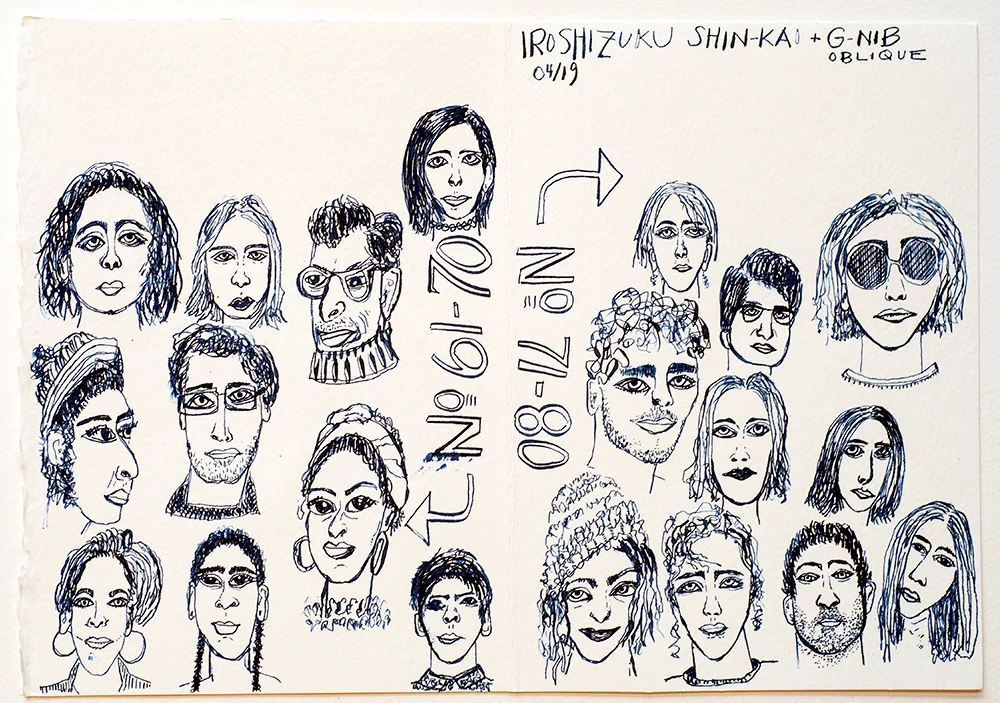 IROSHIZUKU SHIN-KAI + G-NIB
OBLIQUE
04/19
Nº 61-70
Nº 71-80